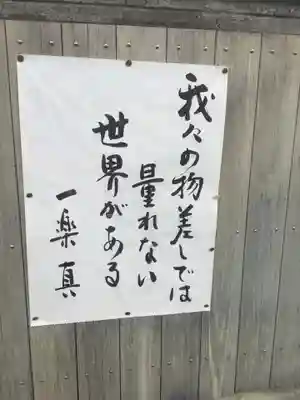 我々の物差しでは
量れない
世界がある
一楽真